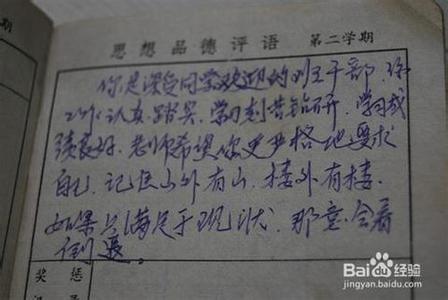 思想品德评语 第二学期
你是深受同学欢迎的班干部,你
工作认真、踏实,学习刻苦钻研,学习成
绩良好。老师希望你更严格地要求
自己,记住山外有山,楼外有楼。
如果只满足于现状,那意会着
倒退。
奖 惩
Baidu经验
jingyan.baidu.com